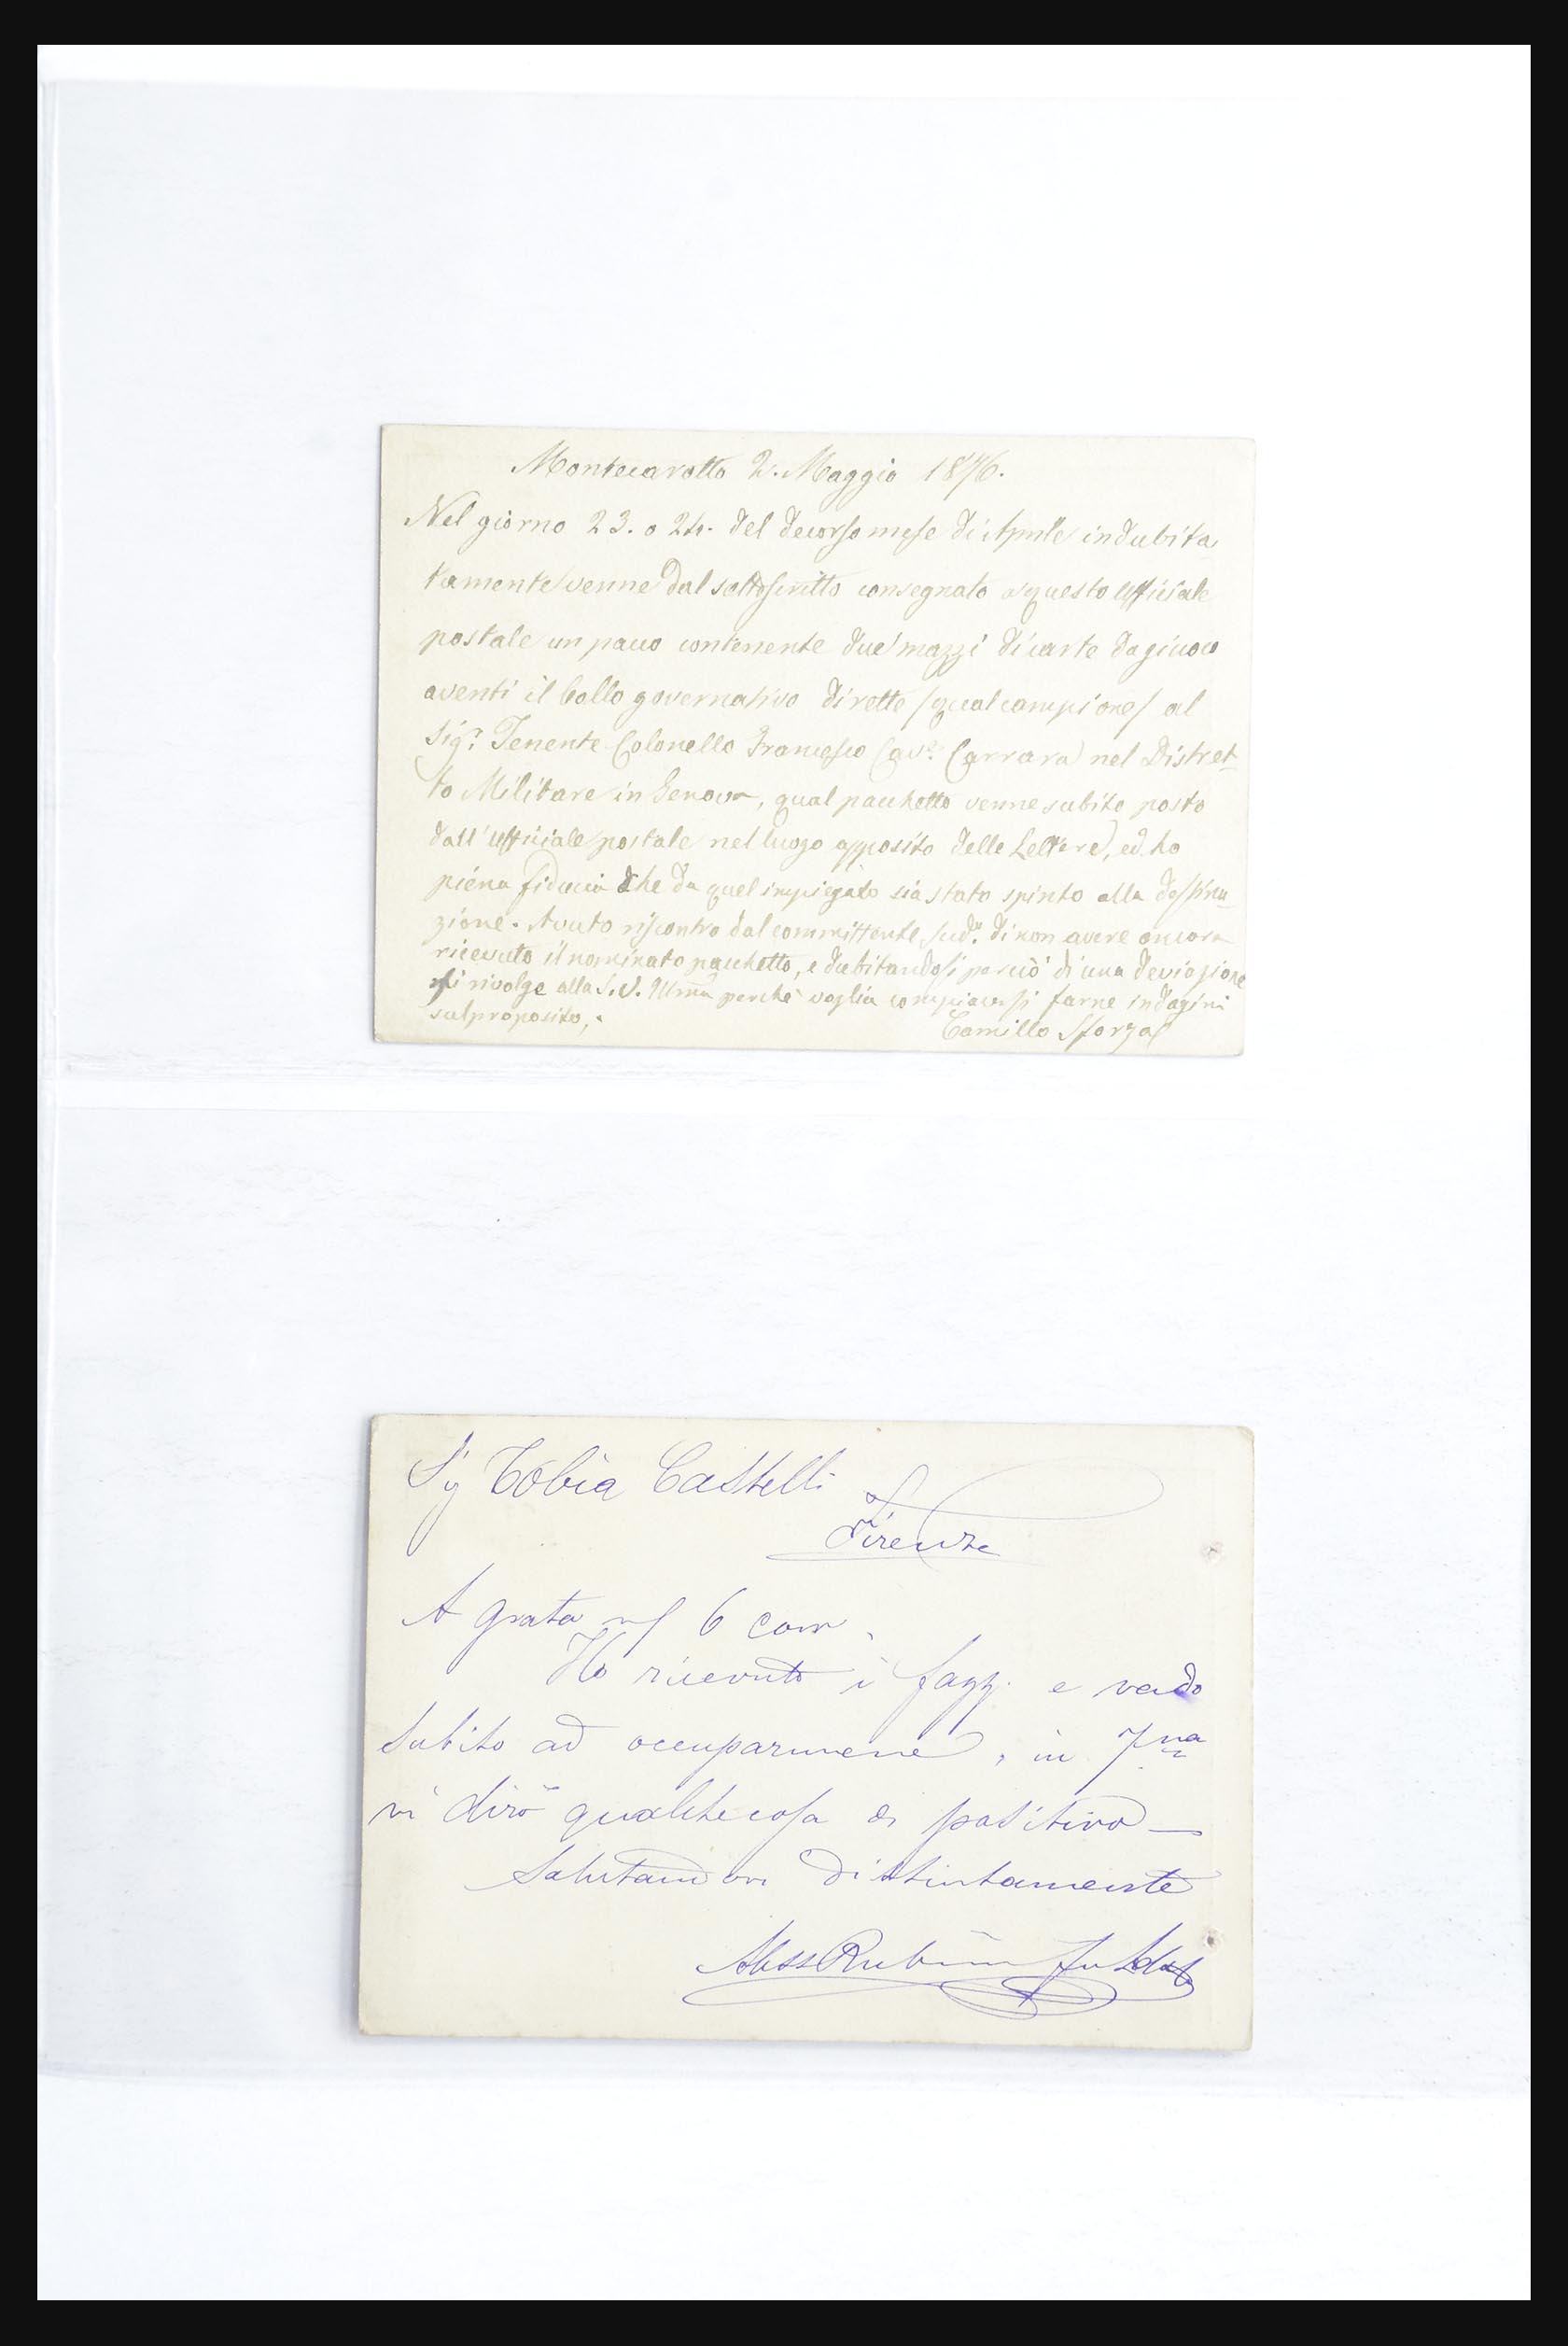 Montecarotto 2. Maggio 1876.
Nel giorno 23. o 24. del decorso mese di Aprile indubita
tamente venne dal sottoscritto consegnato a questo Ufficiale
postale un pacco contenente due mazzi di carte da giuoco
aventi il bollo governativo dirette /qual campione/ al
Sigr. Tenente Colonello Francesco Cave. Carrara nel Distret-
to Militare in Genova, qual pacchetto venne subito posto
dall'Ufficiale postale nel luogo apposito delle Lettere, ed ho
piena fiducia che da quel impiegato sia stato spinto alla destina-
zione. Avuto riscontro dal committente sudo. di non avere ancora
ricevuto il nominato pacchetto, e dubitandosi perciò di una deviazione
si rivolge alla S. V. Illma perchè voglia compiacersi farne indagini
sul proposito,.
Camillo Sforza
Sig Tobia Castelli
Firenze
A grata 6 corr.
Ho ricevuto i fazz. e vado
subito ad occuparmene, in 7na
vi dirò qualche cosa di positivo —
Salutandovi distintamente
Aless Rubini